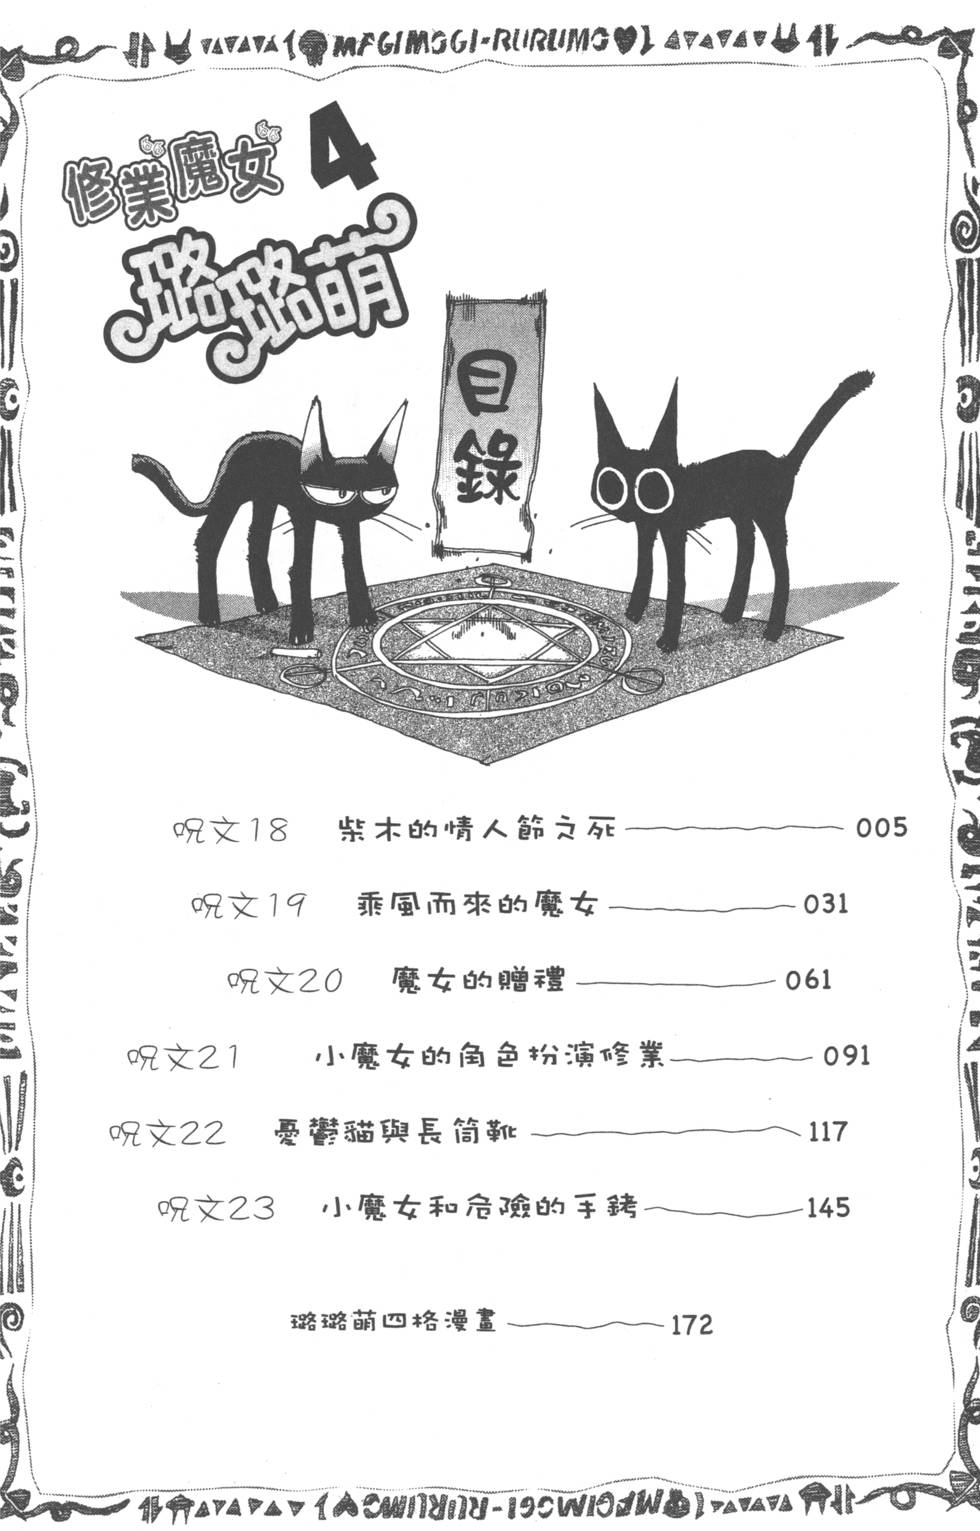 MEGIMOGI-RURUMO
修業魔女
4
璐璐萌
目錄
呪文18 柴木的情人節之死 005
呪文19 乘風而來的魔女 031
呪文20 魔女的贈禮 061
呪文21 小魔女的角色扮演修業 091
呪文22 憂鬱貓與長筒靴 117
呪文23 小魔女和危險的手銬 145
璐璐萌四格漫畫 172
MEGIMOGI-RURUMO